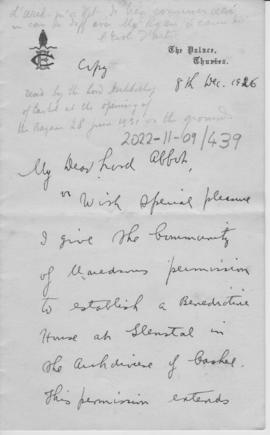 The Palace,
Thurles.
Copy
8th Dec. 1926
read by the Lord Archbishop
of Cashel at the opening of
the 28 June 1931 on the grounds
2022-11-09/439
My Dear Lord Abbot,
"With special pleasure
I give the Community
of Maredsous permission
to establish a Benedictine
House at Glenstal in
the Archdiocese of Cashel.
This permission extends